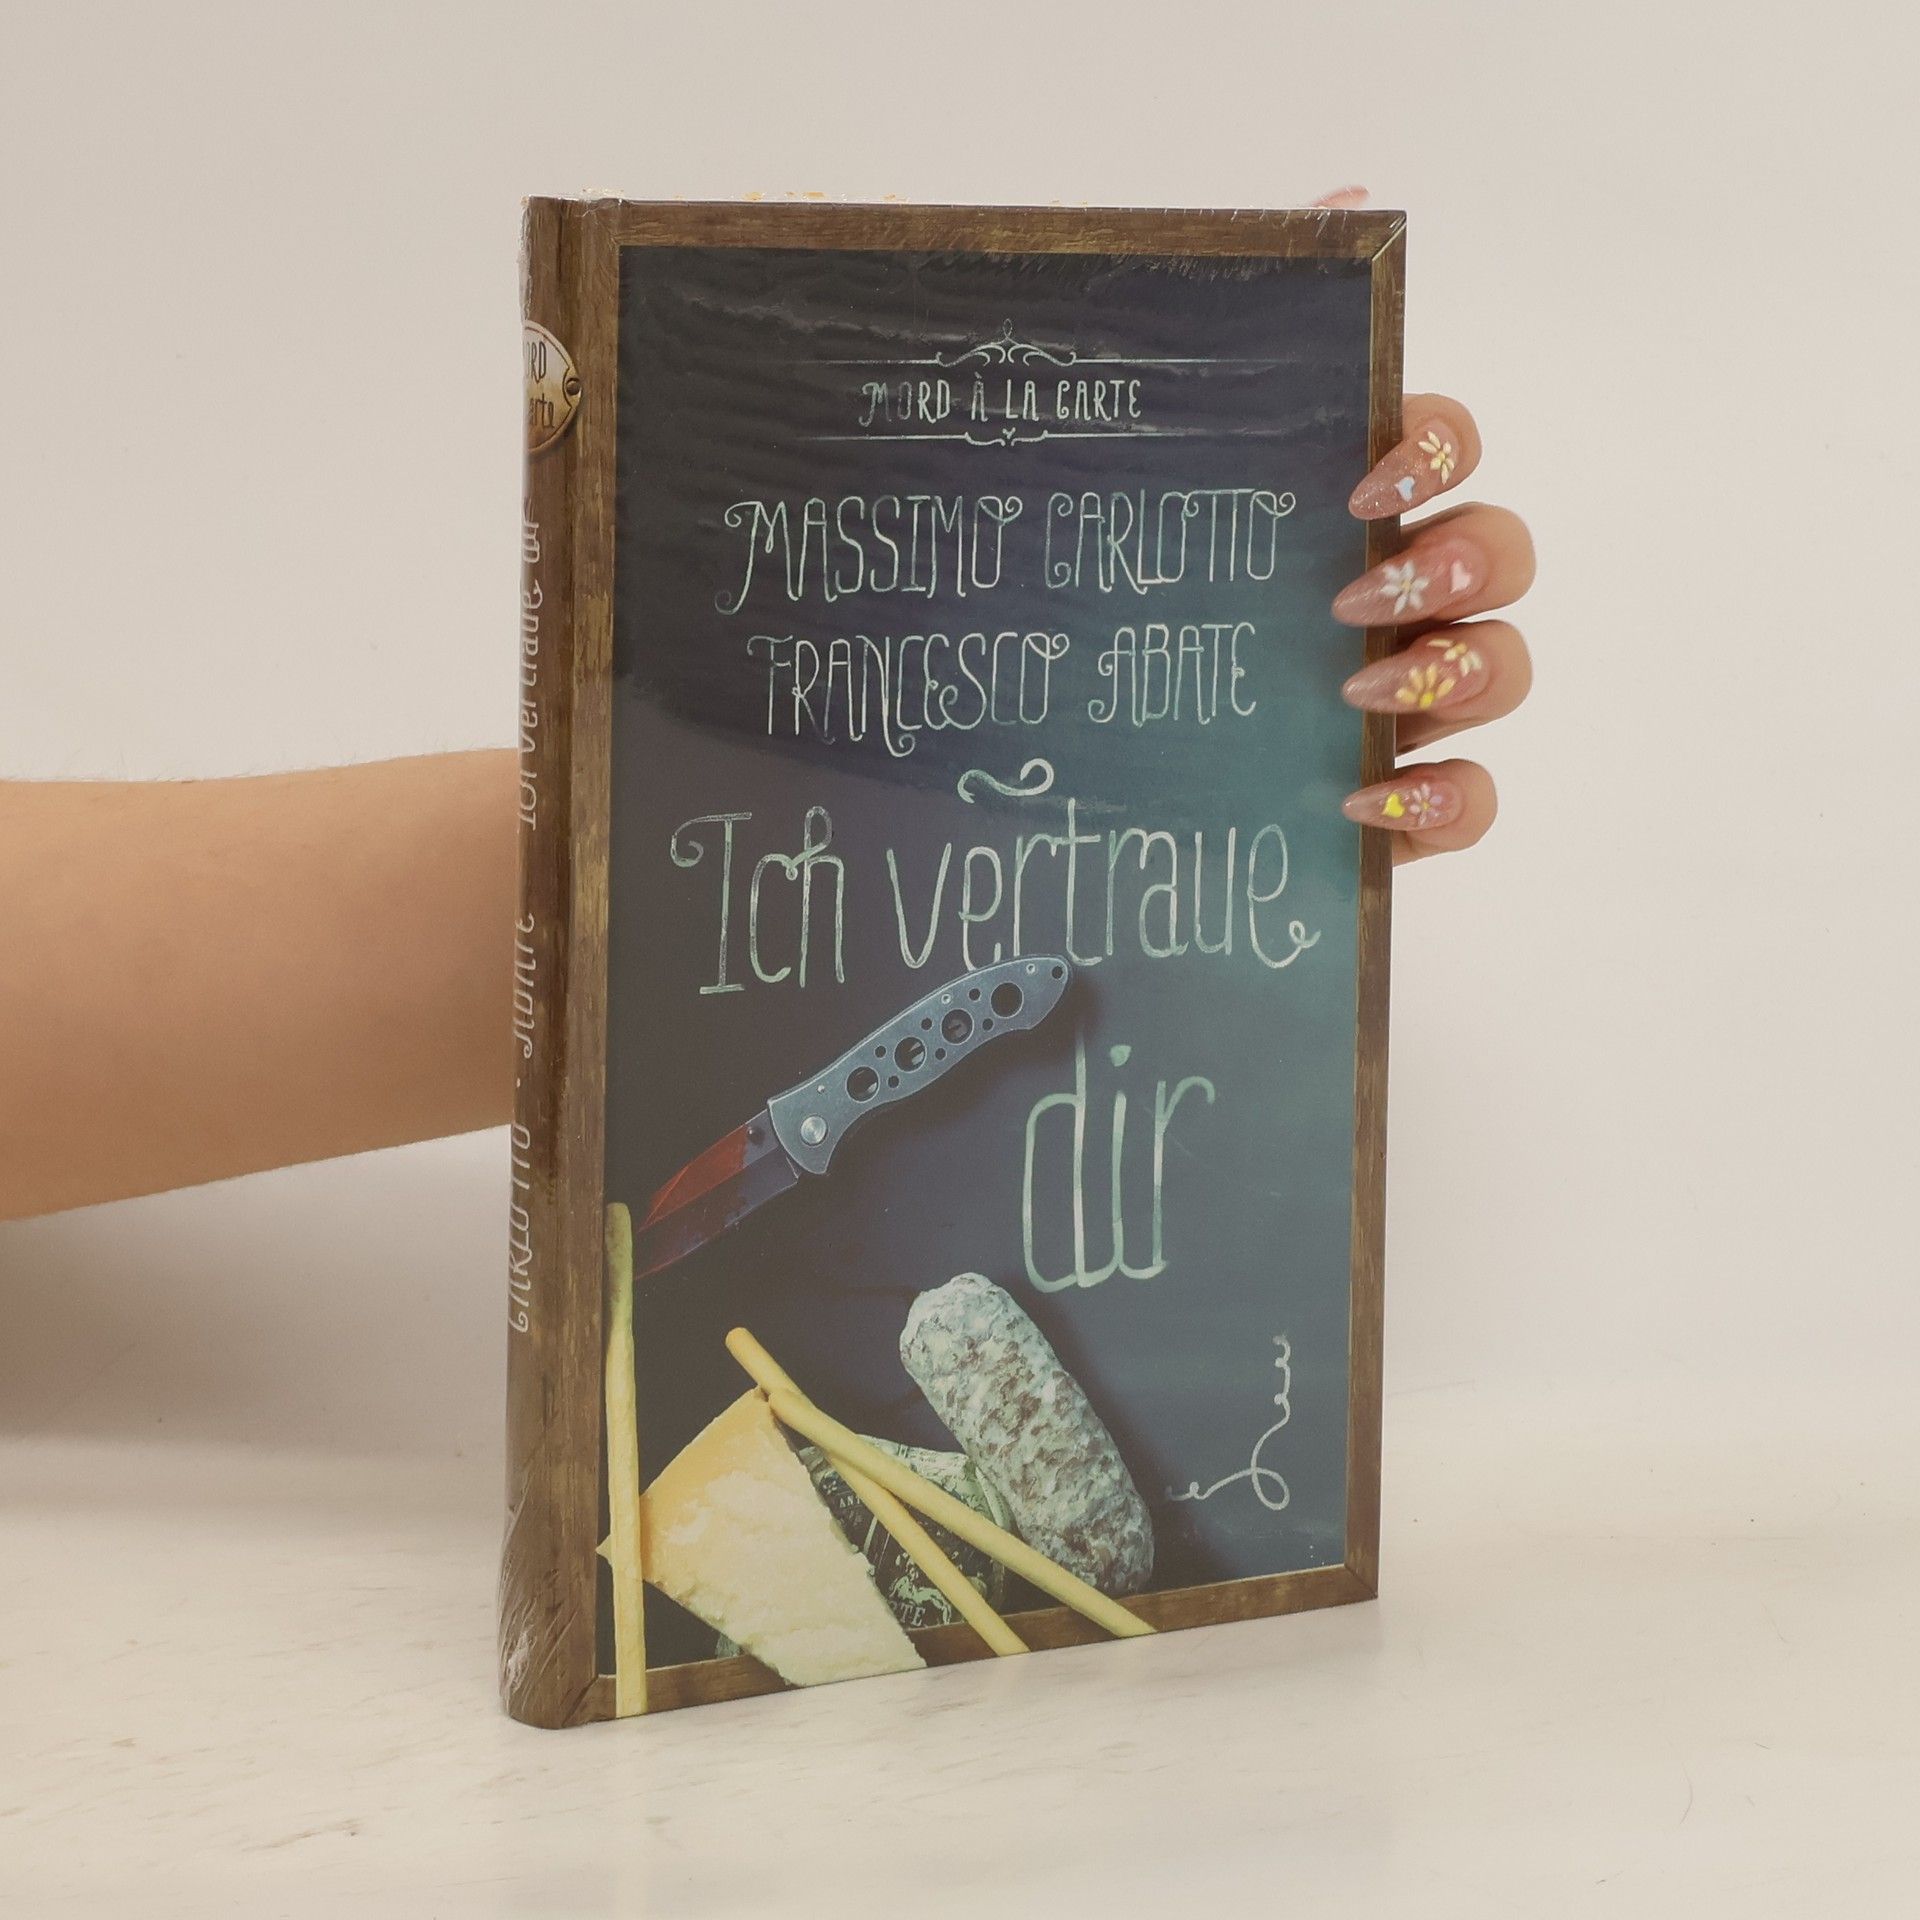 MORD À LA CARTE
MASSIMO CARLOTTO
FRANCESCO ABATE
Ich vertraue
dir
CARLOTTO · ABATE Ich vertraue dir